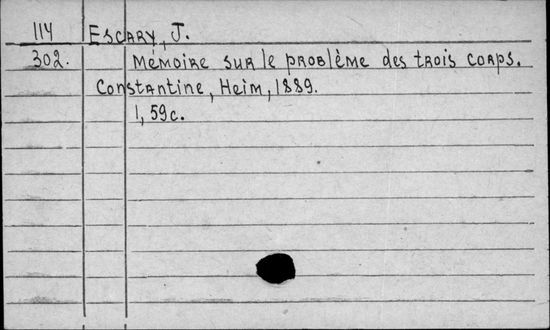 114 Escary, J.
302. Mémoire sur le problème des trois corps.
Constantine, Heim, 1889.
1, 59c.